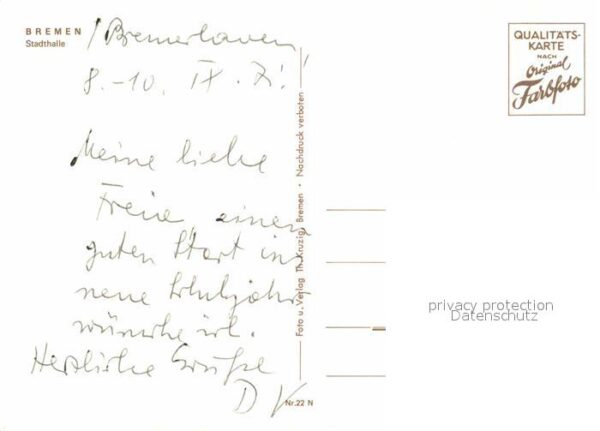 BREMEN
Stadthalle
/ Bremerhaven
8.-10. IX. 71!
Meine liebe
einen
guten Start ins
neue Schuljahr
wünsche ich.
Herzliche Grüße
D V
Foto u. Verlag Th. Kruzig, Bremen • Nachdruck verboten
Nr. 22 N
QUALITÄTS-
KARTE
NACH
Original
Farbfoto
privacy protection
Datenschutz